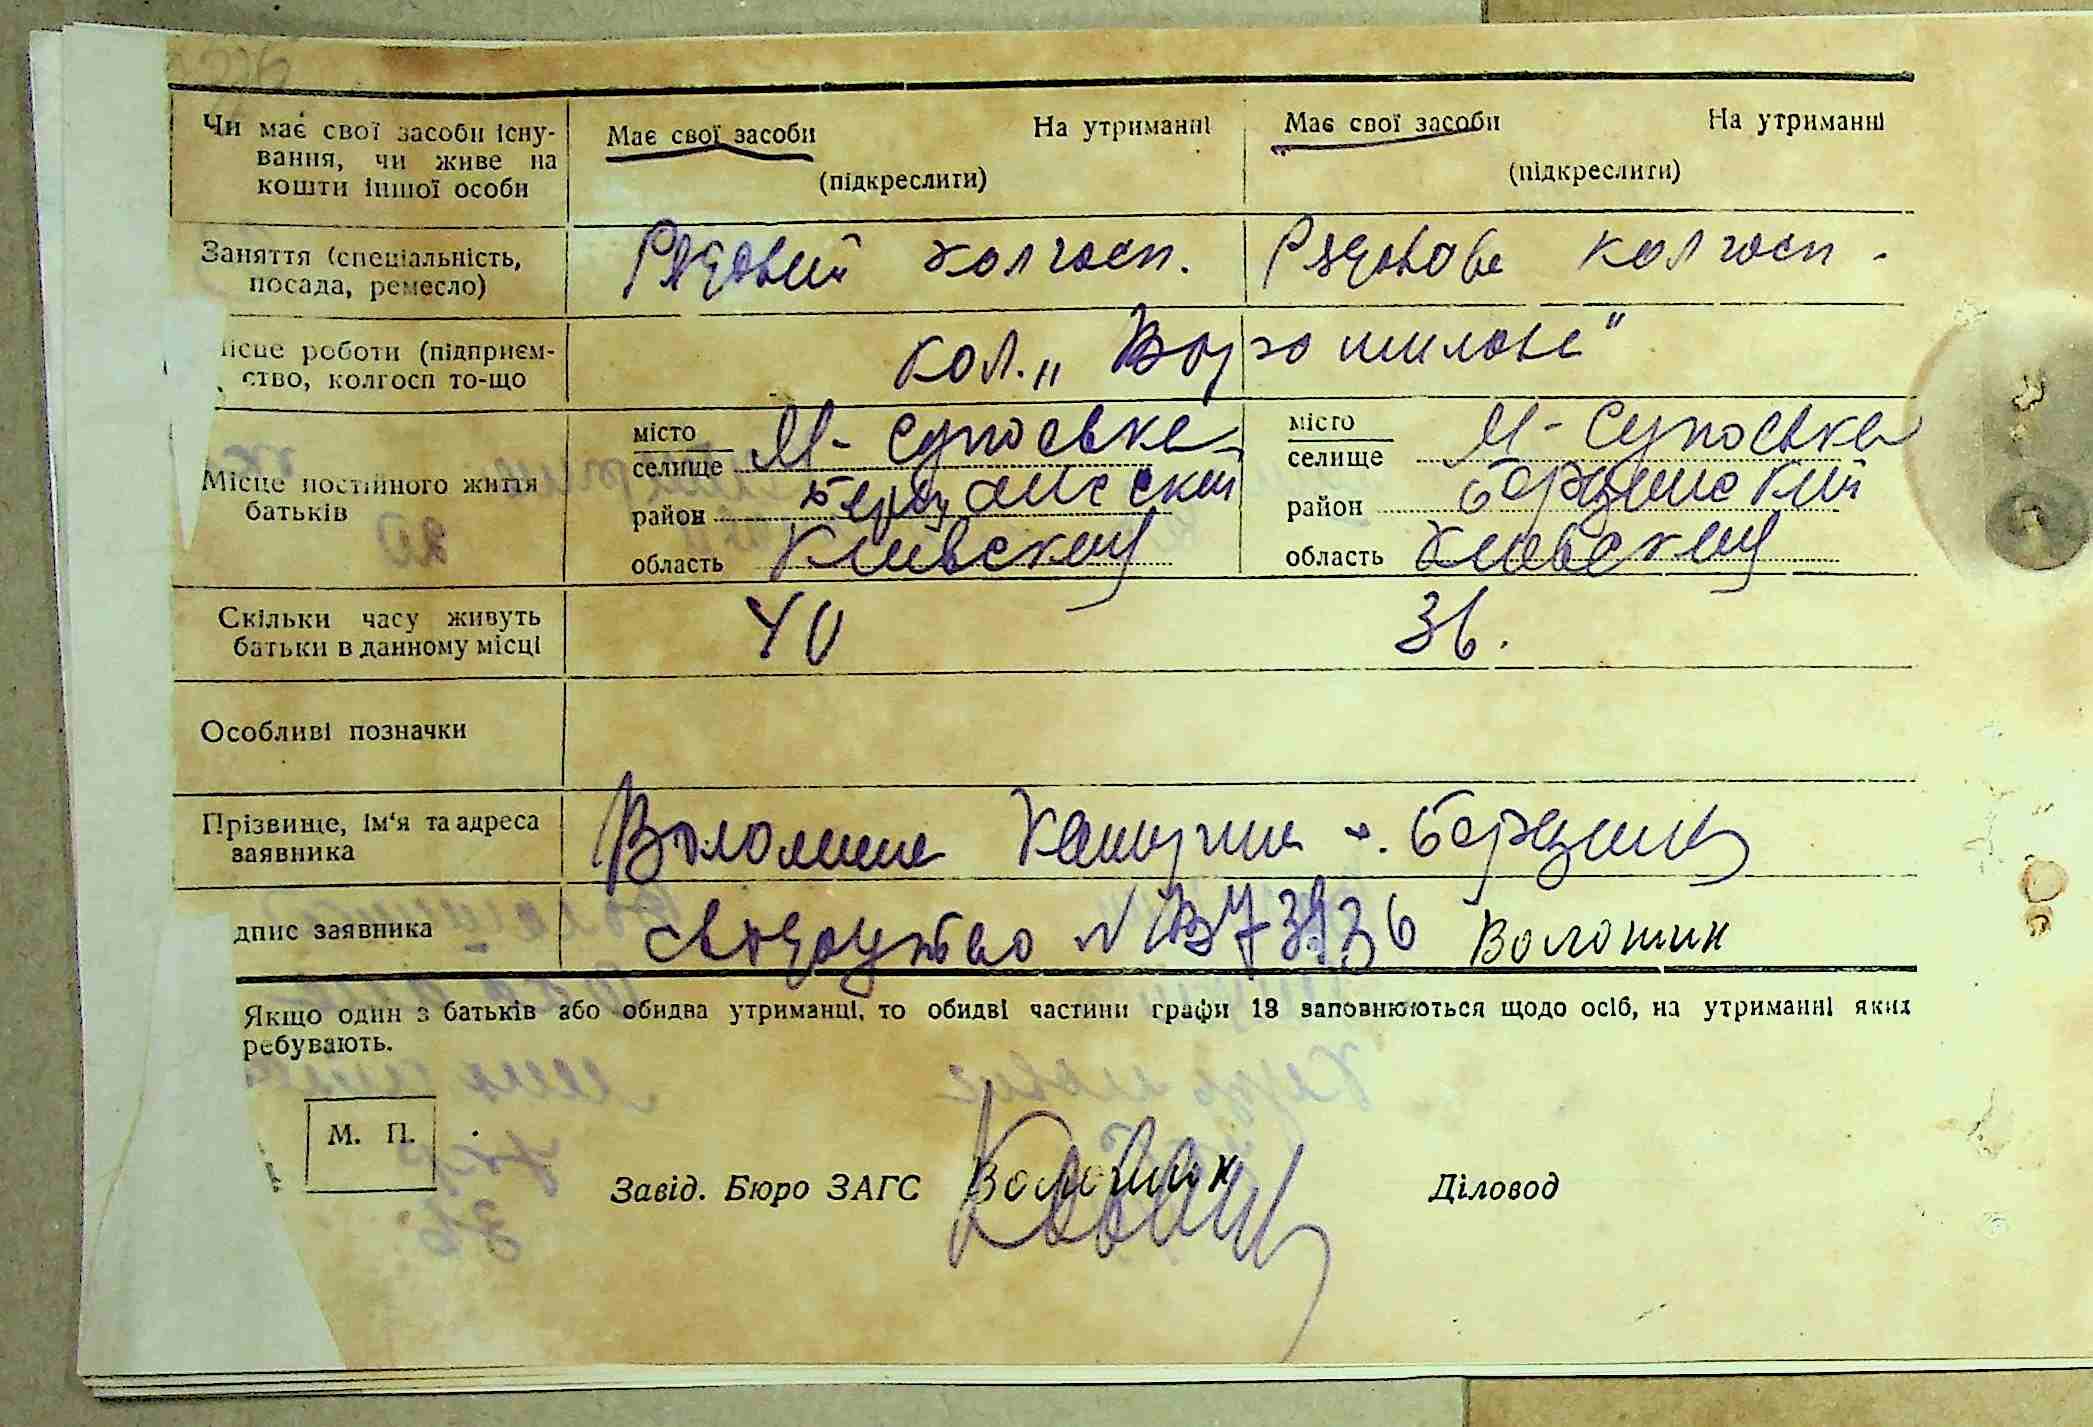 Чи має свої засоби існу-
вання, чи живе на
кошти іншої особи
Має свої засоби На утриманні
(підкреслити)
Має свої засоби На утриманні
(підкреслити)
Заняття (спеціальність,
посада, ремесло)
Рядовий колгосп.
Рядова колгосп.
ісце роботи (підприєм-
ство, колгосп то-що
кол. „Ворошилова"
Місце постійного життя
батьків
місто
селище М-Супоєвка
район
область Київский
місто
селище М-Супоєвка
район
область Київский
Скільки часу живуть
батьки в данному місці
40
36.
Особливі позначки
Прізвище, ім'я та адреса
заявника
Волошин
дпис заявника
Свідоцтво N Волошин
Якщо один з батьків або обидва утриманці, то обидві частини графи 13 заповнюються щодо осіб, на утриманні яких
ребувають.
М. П.
Завід. Бюро ЗАГС Волошин Діловод